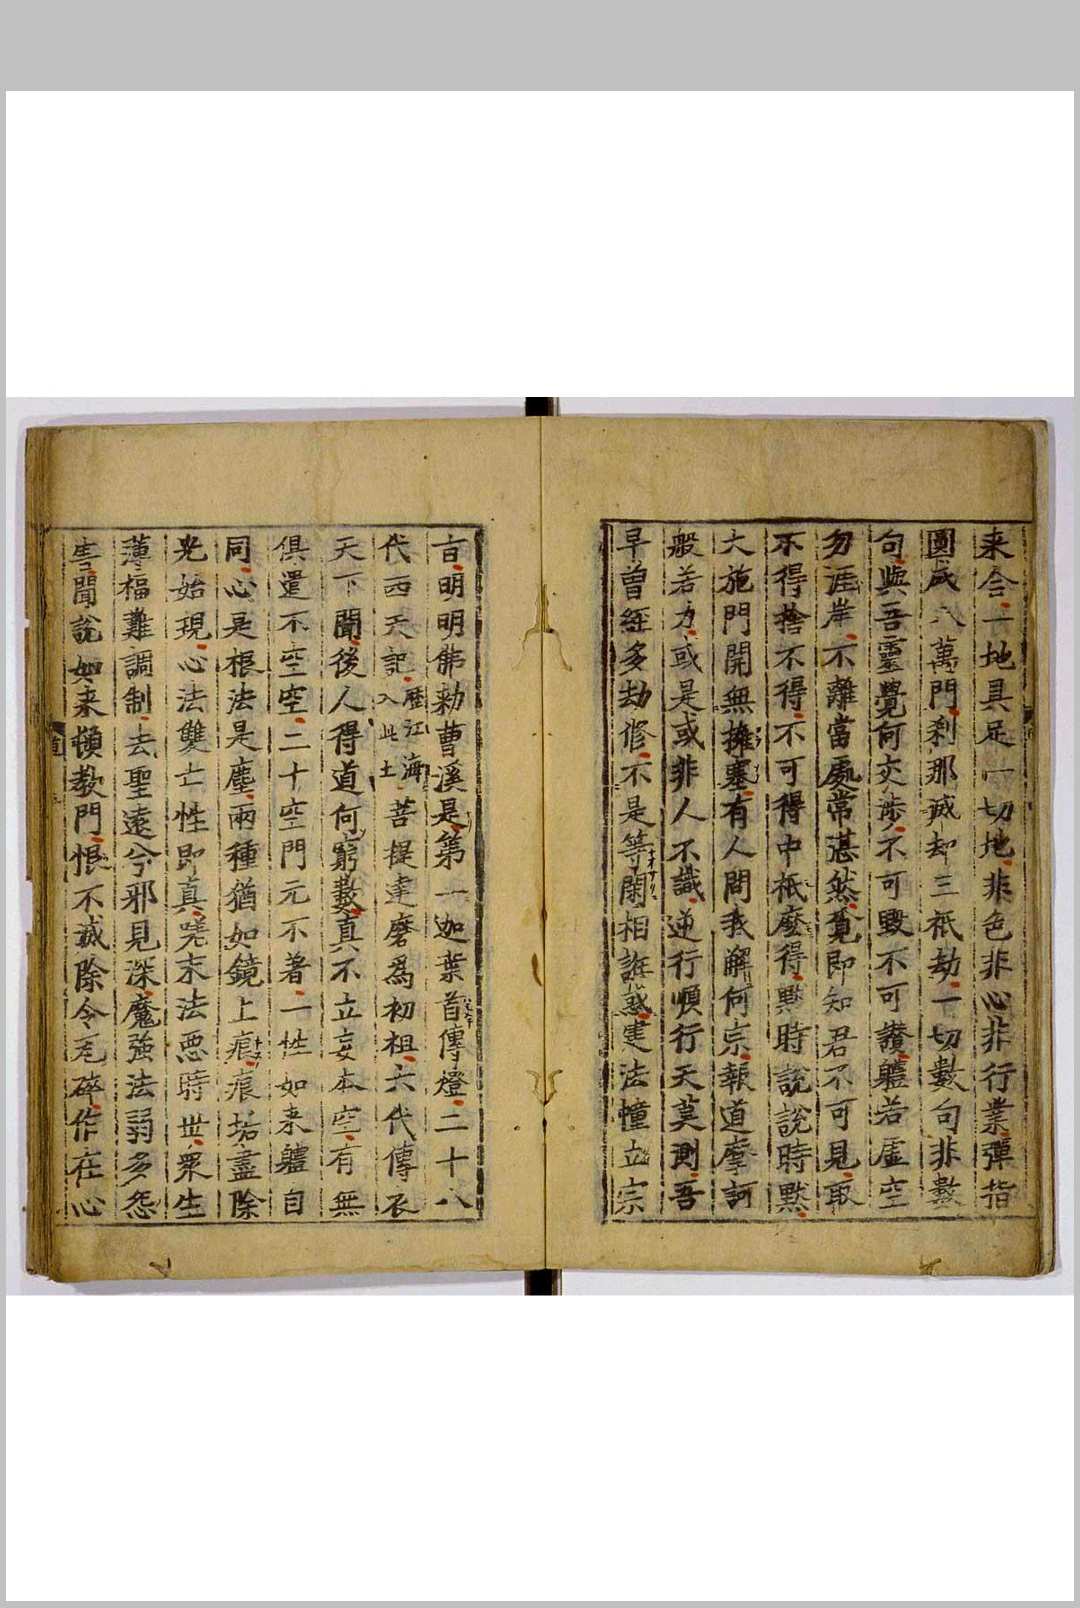 来合一地具足一切地非色非心非行業彈指
圓成八萬門刹那滅却三祇劫一切數句非數
句與吾靈覺何交渉不可毁不可讃軆若虛空
勿涯岸不離當處常湛然覓即知君不可見取
不得捨不得不可得中祇麽得黙時說說時黙
大施門開無擁塞有人問我解何宗報道摩訶
般若力或是或非人不識逆行順行天莫測吾
早曽経多劫修不是等閑相誑惑建法幢立宗
㫖明明佛勑曹溪是第一迦葉首傳燈二十八
代西天記歴江海入此土菩提達磨爲初祖六代傳衣
天下聞後人得道何窮數真不立妄本空有無
俱遣不空空二十空門元不著一性如来軆自
同心是根法是塵兩種猶如鏡上痕痕垢盡除
光始現心法雙亡性即真嗟末法悪時世衆生
薄福難調制去聖遠兮邪見深魔強法弱多怨
害聞說如来頓教門恨不滅除令瓦碎作在心